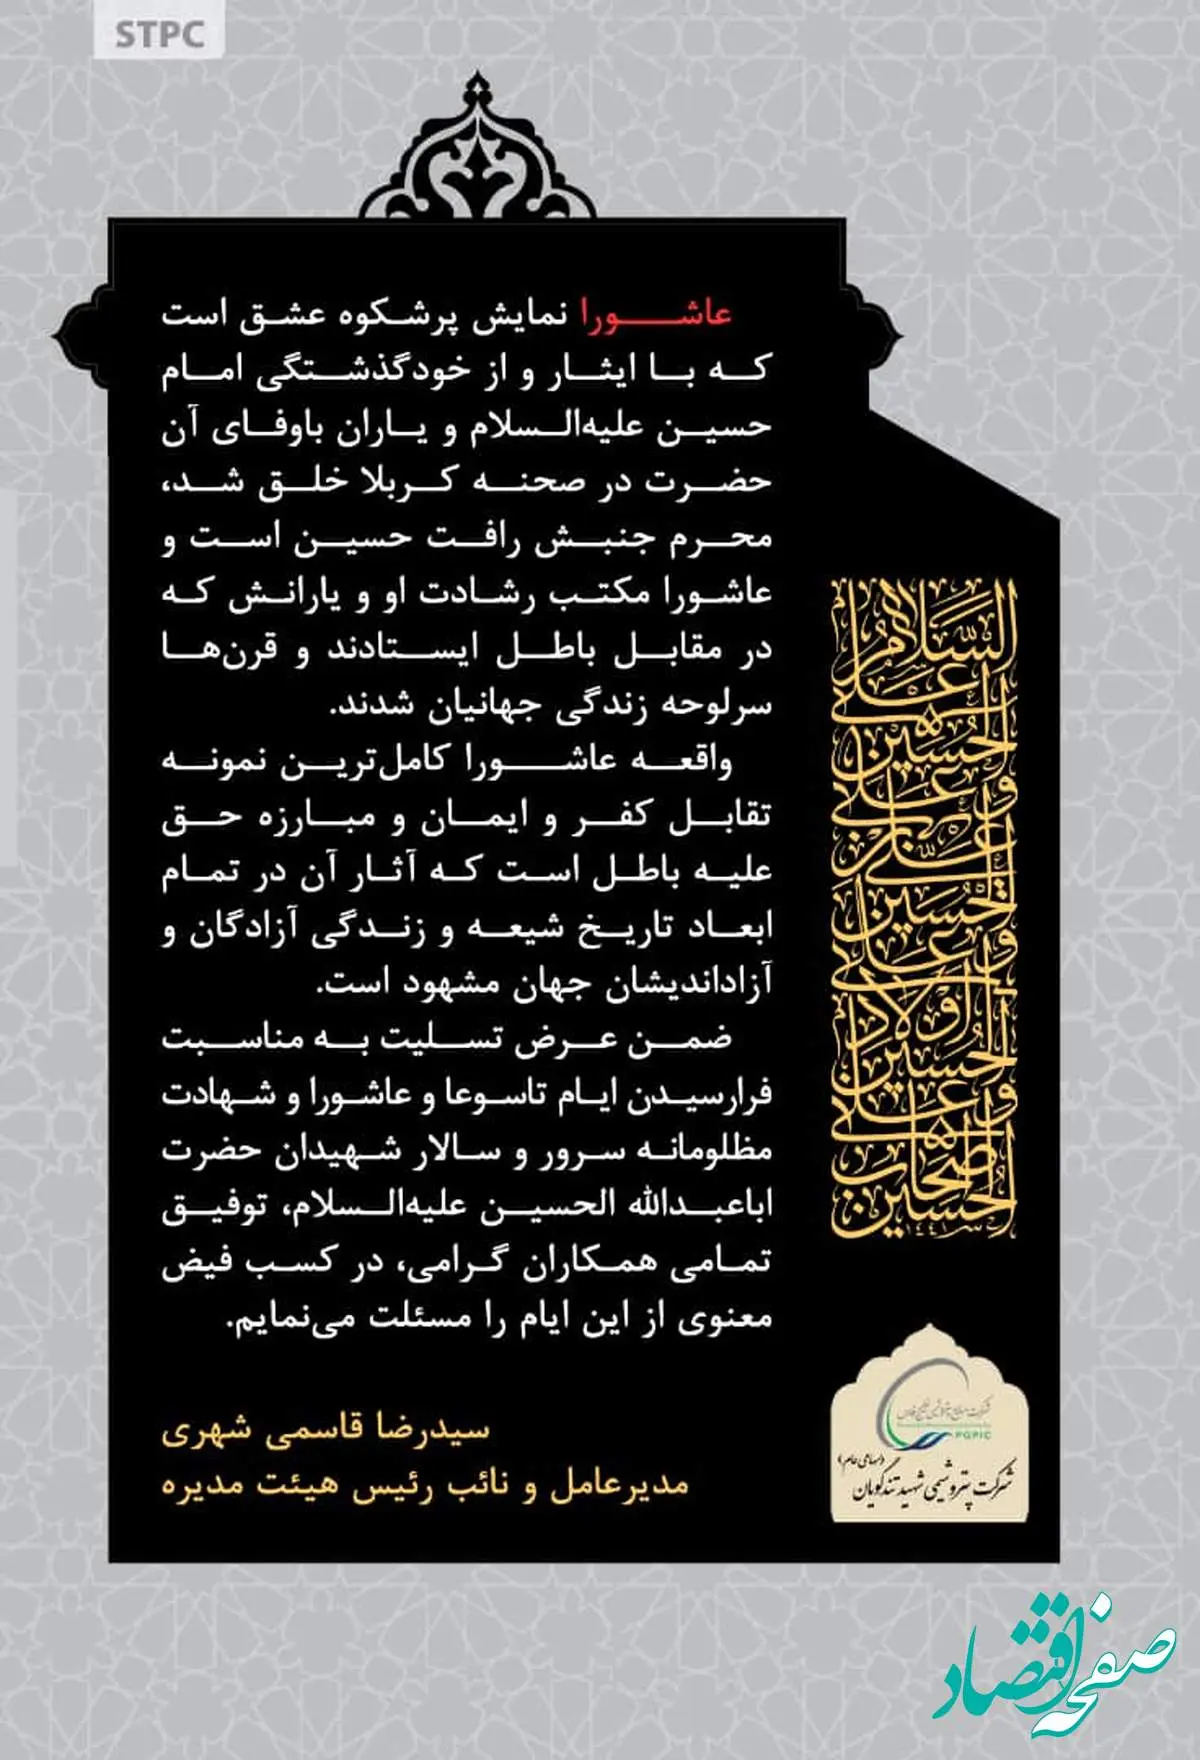 STPC
عاشورا نمایش پرشکوه عشق است
که با ایثار و از خودگذشتگی امام
حسین علیه‌السلام و یاران باوفای آن
حضرت در صحنه کربلا خلق شد،
محرم جنبش رافت حسین است و
عاشورا مکتب رشادت او و یارانش که
در مقابل باطل ایستادند و قرن‌ها
سرلوحه زندگی جهانیان شدند.
واقعه عاشورا کامل‌ترین نمونه
تقابل کفر و ایمان و مبارزه حق
علیه باطل است که آثار آن در تمام
ابعاد تاریخ شیعه و زندگی آزادگان و
آزاداندیشان جهان مشهود است.
ضمن عرض تسلیت به مناسبت
فرارسیدن ایام تاسوعا و عاشورا و شهادت
مظلومانه سرور و سالار شهیدان حضرت
اباعبدالله الحسین علیه‌السلام، توفیق
تمامی همکاران گرامی، در کسب فیض
معنوی از این ایام را مسئلت می‌نمایم.
سیدرضا قاسمی شهری
مدیرعامل و نائب رئیس هیئت مدیره
السلام
علی
الحسین
و علی
علی بن
الحسین
و علی
اولاد
الحسین
و علی
اصحاب
الحسین
۱۴۴۱
شرکت صنایع پتروشیمی خلیج فارس
PGPIC
(سهامی عام)
شرکت پتروشیمی شهید تندگویان
صفحه اقتصاد